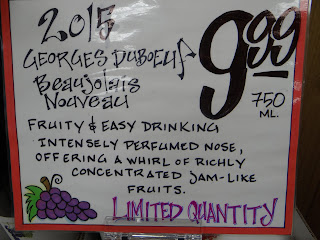 2015
GEORGES DUBOEUF
Beaujolais
Nouveau
9.99
750
ML.
FRUITY & EASY DRINKING
INTENSELY PERFUMED NOSE,
OFFERING A WHIRL OF RICHLY
CONCENTRATED JAM-LIKE
FRUITS.
LIMITED QUANTITY